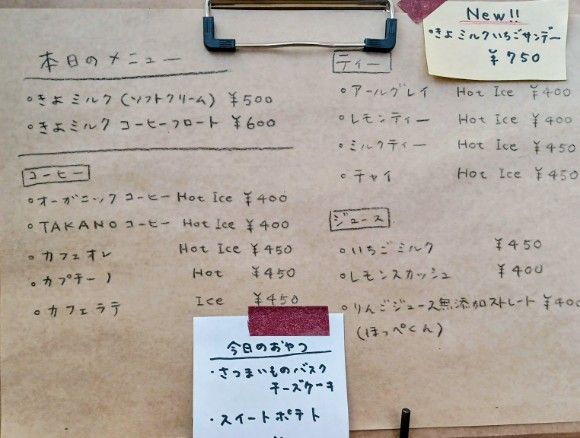 本日のメニュー
・きよミルク(ソフトクリーム) ¥500
・きよミルク コーヒーフロート ¥600
コーヒー
・オーガニックコーヒー Hot Ice ¥400
・TAKANOコーヒー Hot Ice ¥400
・カフェオレ Hot Ice ¥450
・カプチーノ Hot ¥450
・カフェラテ Ice ¥450
今日のおやつ
・さつまいものバスク
チーズケーキ
・スイートポテト
New!!
・きよミルクいちごサンデー
¥750
ティー
・アールグレイ Hot Ice ¥400
・レモンティー Hot Ice ¥400
・ミルクティー Hot Ice ¥450
・チャイ Hot Ice ¥450
ジュース
・いちごミルク ¥450
・レモンスカッシュ ¥400
・りんごジュース無添加ストレート ¥400
(ほっぺくん)